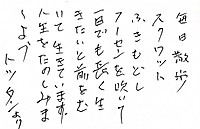 毎日散歩
スクワット
ふきもどし
フーセンを吹いて
一日でも長く生
きたいと前をむ
いて生きています。
人生をたのしみま
しょう
トッタンより